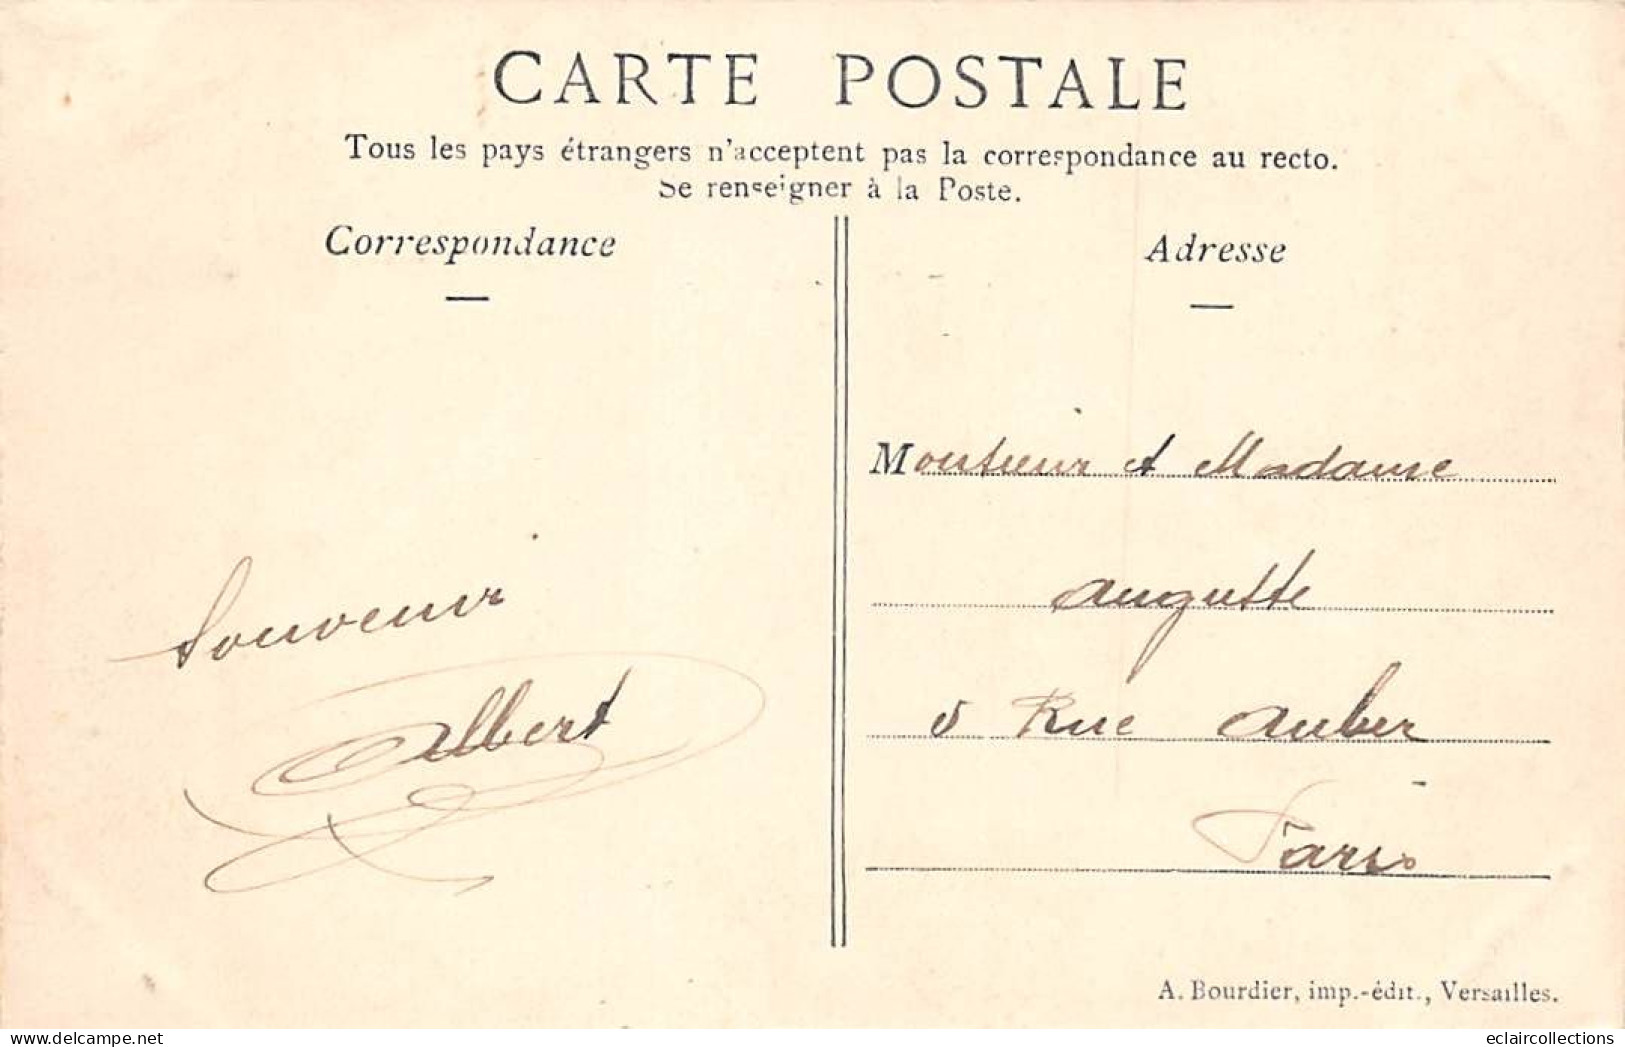 CARTE POSTALE
Tous les pays étrangers n'acceptent pas la correspondance au recto.
Se renseigner à la Poste.
Correspondance
Souvenir
Albert
Adresse
Monsieur et Madame
Auguste
5 Rue Auber
Paris
A. Bourdier, imp.-édit., Versailles.
eclaircollections